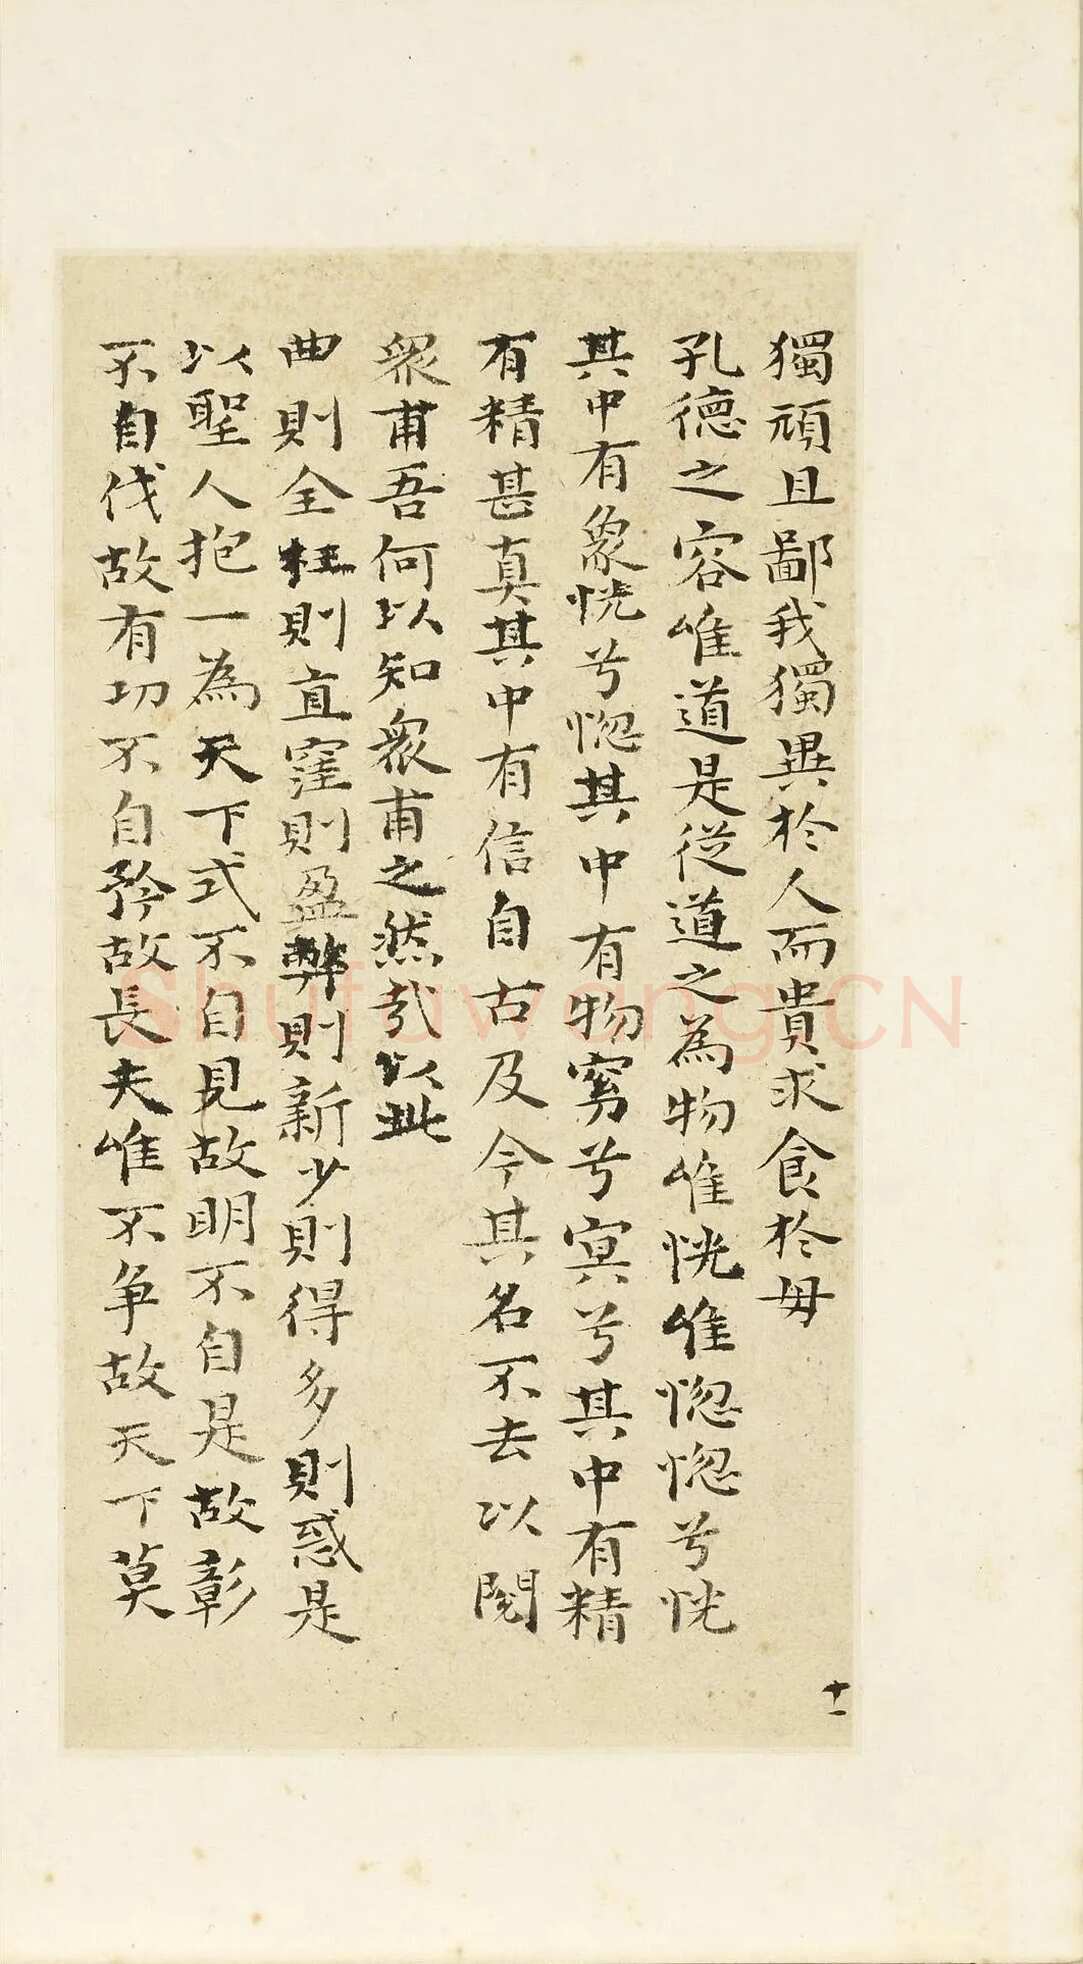 獨頑且鄙我獨異於人而貴求食於母
孔德之容唯道是從道之為物唯恍唯惚惚兮恍
其中有象恍兮惚其中有物窈兮冥兮其中有精
有精甚真其中有信自古及今其名不去以閱
衆甫吾何以知衆甫之然哉以此
曲則全枉則直窪則盈弊則新少則得多則惑是
以聖人抱一為天下式不自見故明不自是故彰
不自伐故有功不自矜故長夫唯不争故天下莫
十一
Shufawang.CN